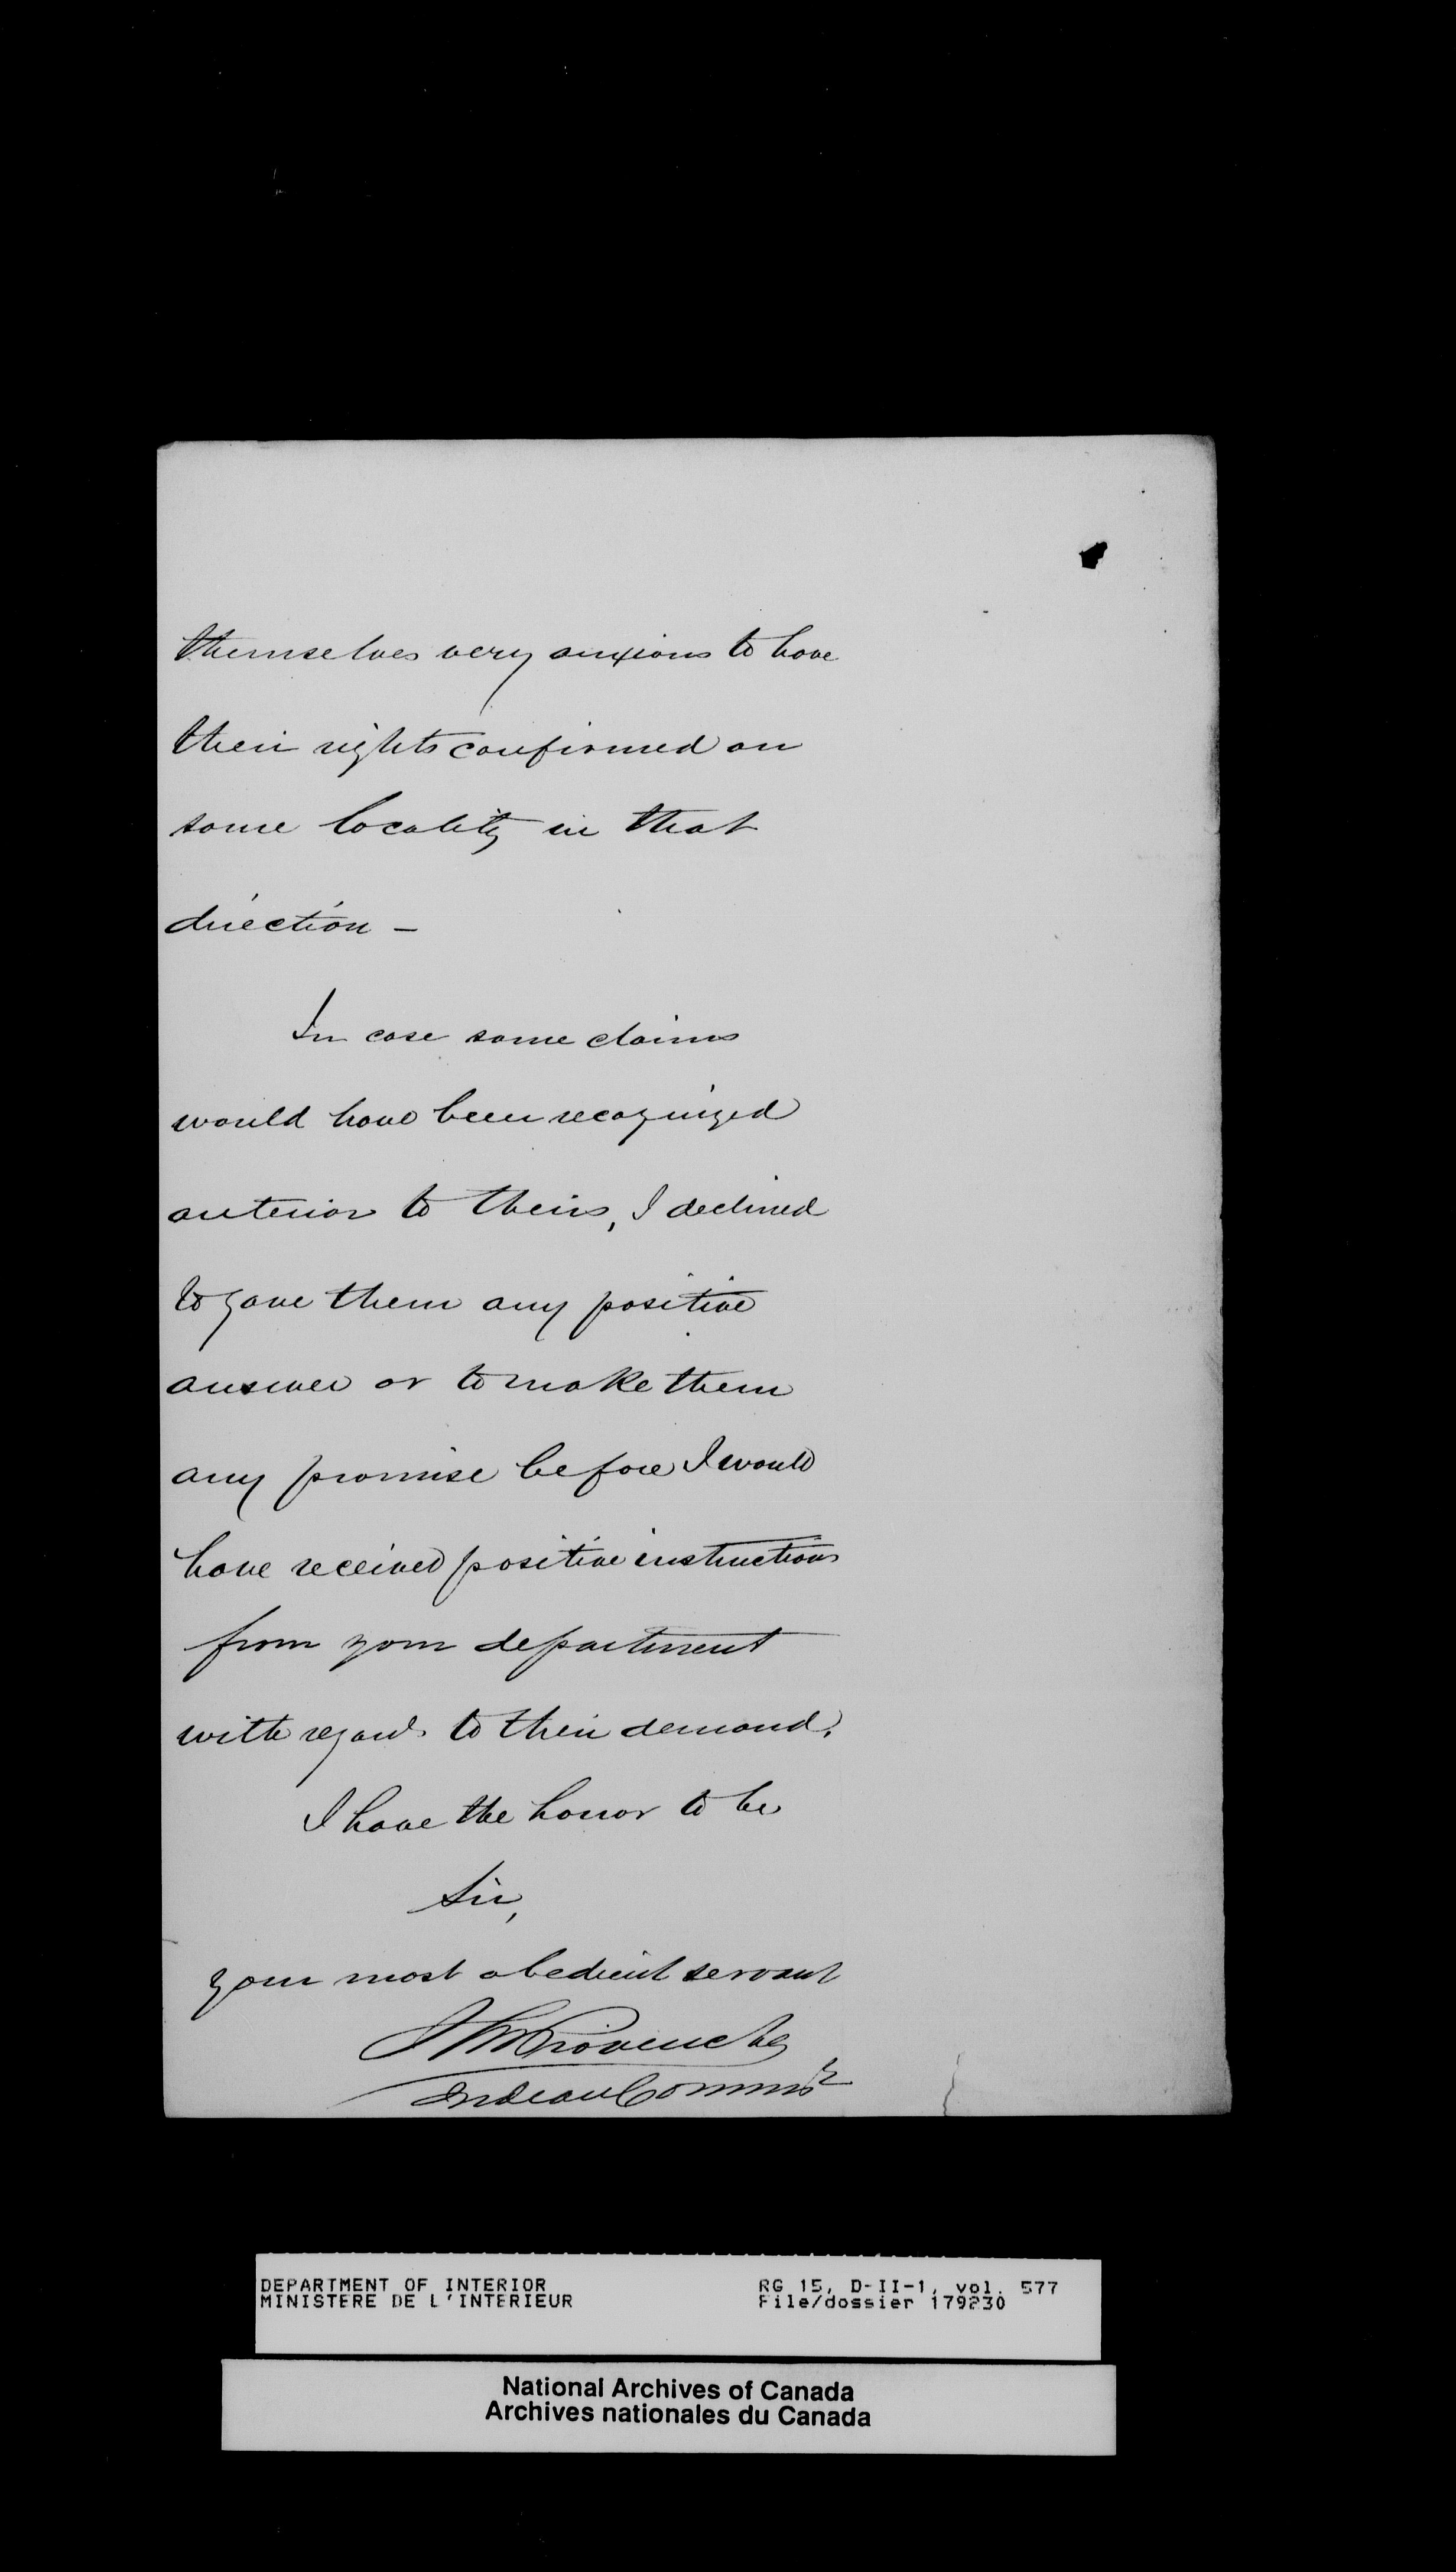 themselves very anxious to have
their rights confirmed on
some locality in that
direction –
In case some claims
would have been recognized
anterior to theirs, I declined
to gave them any positive
answer or to make them
any promise before I would
have received positive instructions
from your department
with regard to their demand.
I have the honor to be
Sir,
your most obedient servant
J A N Provencher
Indian Commisr
DEPARTMENT OF INTERIOR
MINISTERE DE L'INTERIEUR
RG 15, D-II-1, vol. 577
File/dossier 179230
National Archives of Canada
Archives nationales du Canada